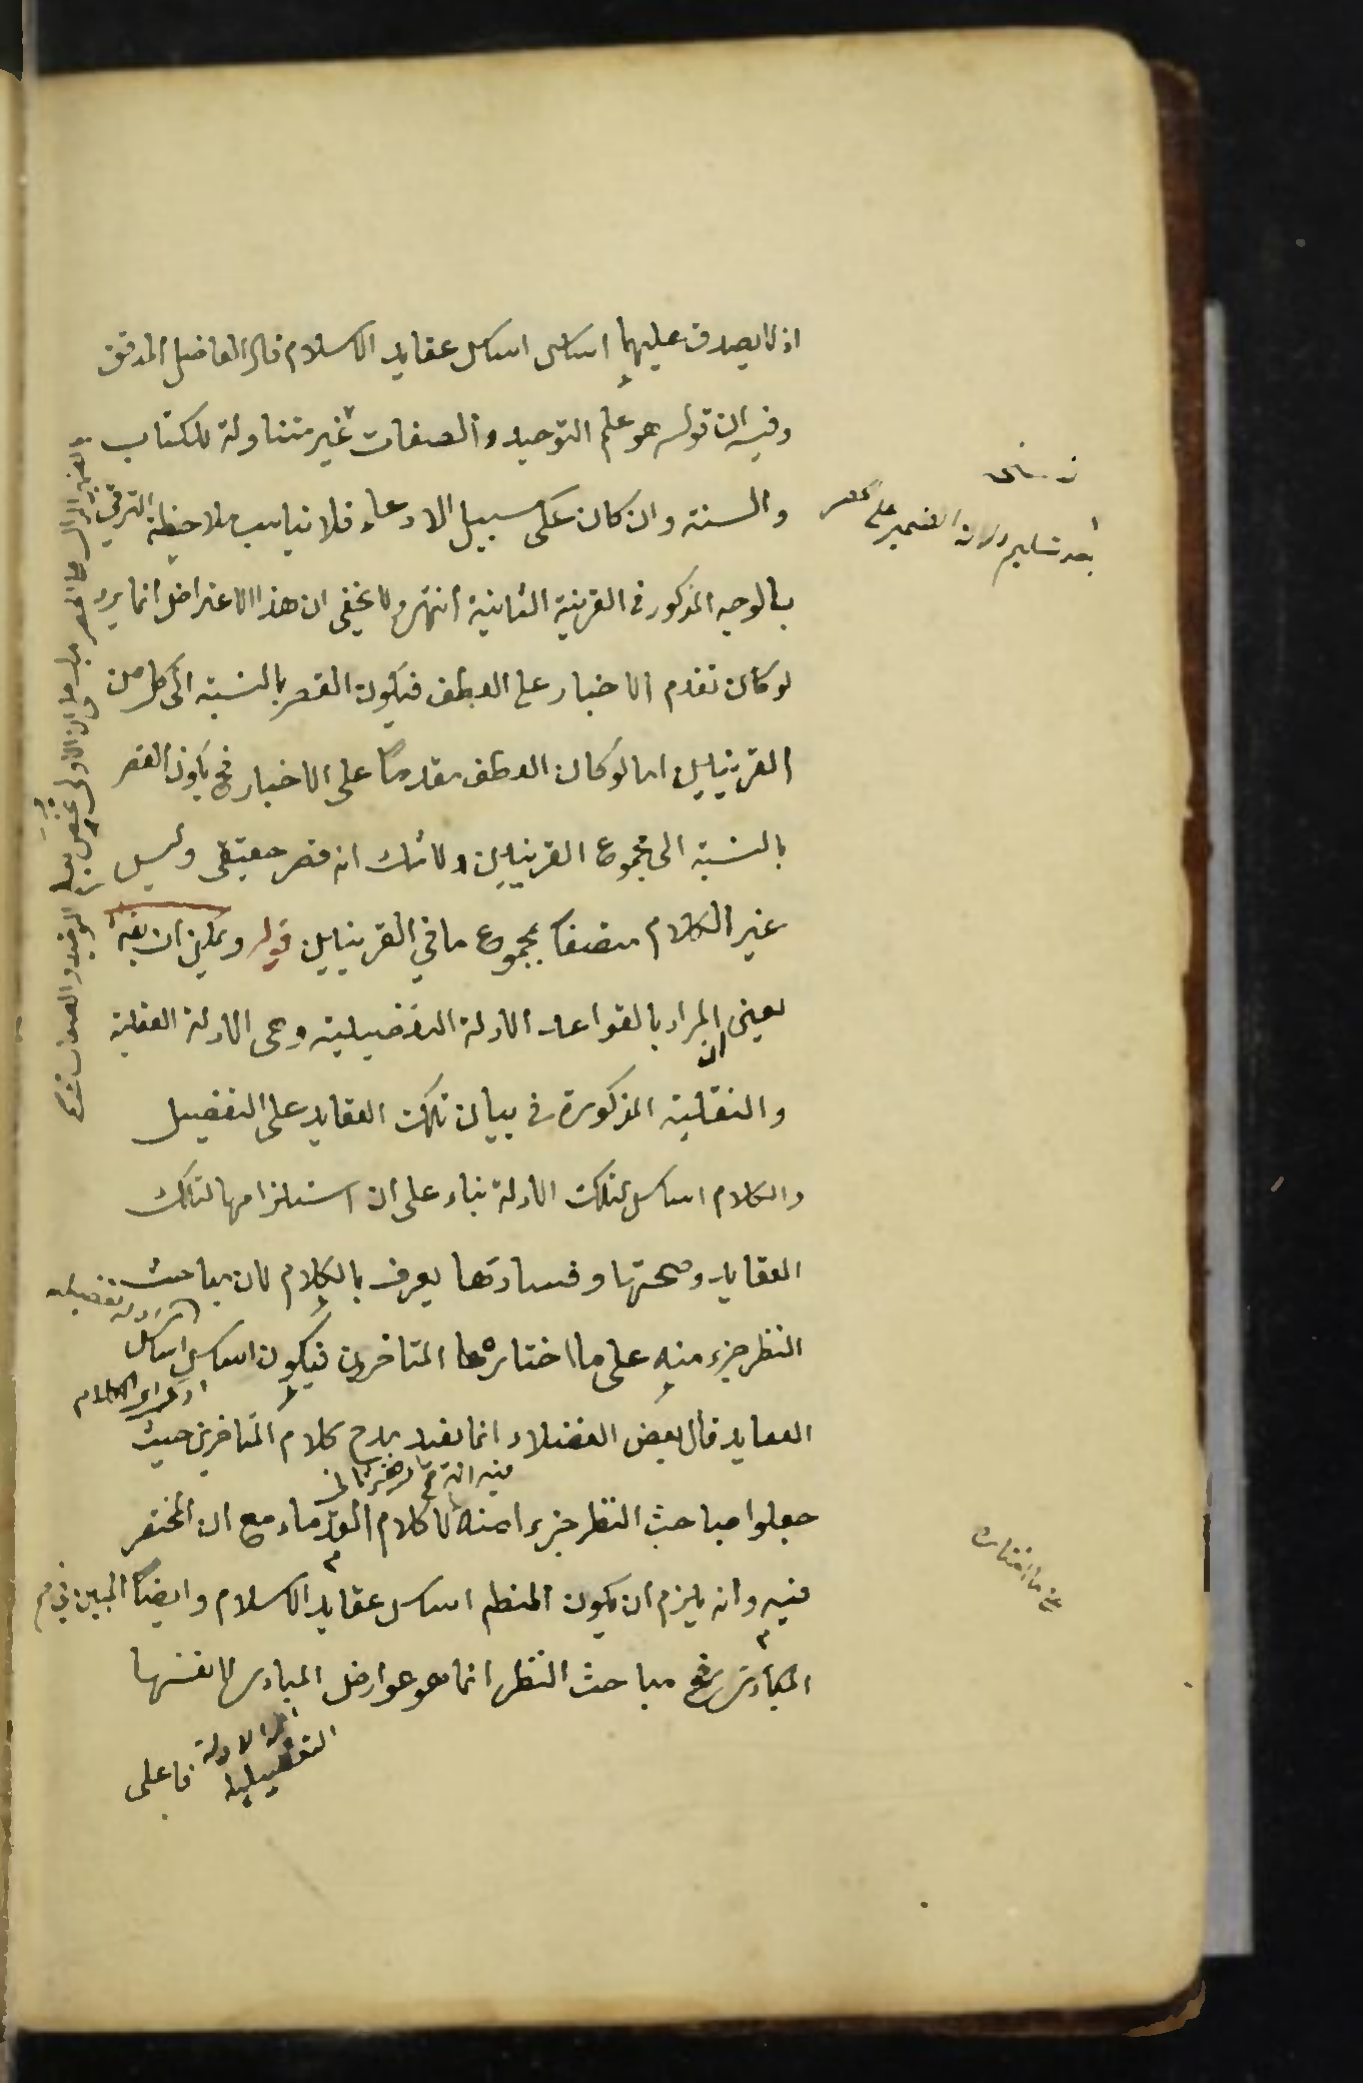 اذ لا يصدق عليهما اساس اساس عقايد الاسلام قال الفاضل المدقق
وفيه ان قوله هو علم التوحيد والصفات غير متناولة للكتاب
والسنة وان كان على سبيل الادعاء فلا يناسب ملاحظة الترقي
بالوجه المذكور في القرينة الثانية انتهى ولا يخفى ان هذا الاعتراض انما يرد
لو كان تقدم الاخبار على العطف فيكون القصر بالنسبة الى كل من
القرينتين اما لو كان العطف مقدما على الاخبار فح يكون القصر
بالنسبة الى مجموع القرينتين ولا شك انه قصر حقيقى وليس
غير الكلام متصفا بمجموع ما في القرينتين قوله ويمكن ان يقه
يعنى ان المراد بالقواعد الادلة التفضيلية وهى الادلة العقلية
والنقلية المذكورة في بيان تلك العقايد على التفضيل
والكلام اساس لتلك الادلة بناء على ان استلزامها لتلك
العقايد وصحتها وفسادها يعرف بالكلام لان مباحث
النظر جزء منه على ما اختاره المتاخرون فيكون اساس اساس
العقايد قال بعض الفضلاء انما يفيد مدح كلام المتاخرين حيث
جعلوا مباحث النظر جزءا منه لا كلام القدماء مع ان المختصر
فيه وانه يلزم ان يكون المنطق اساس عقايد الاسلام وايضا المبين في
المبادى مباحث النظر انما هو عوارض المبادى لا نفسها
اى الادلة
التفضيلية
فاعلى
بعد تسليم دلالة الضمير على